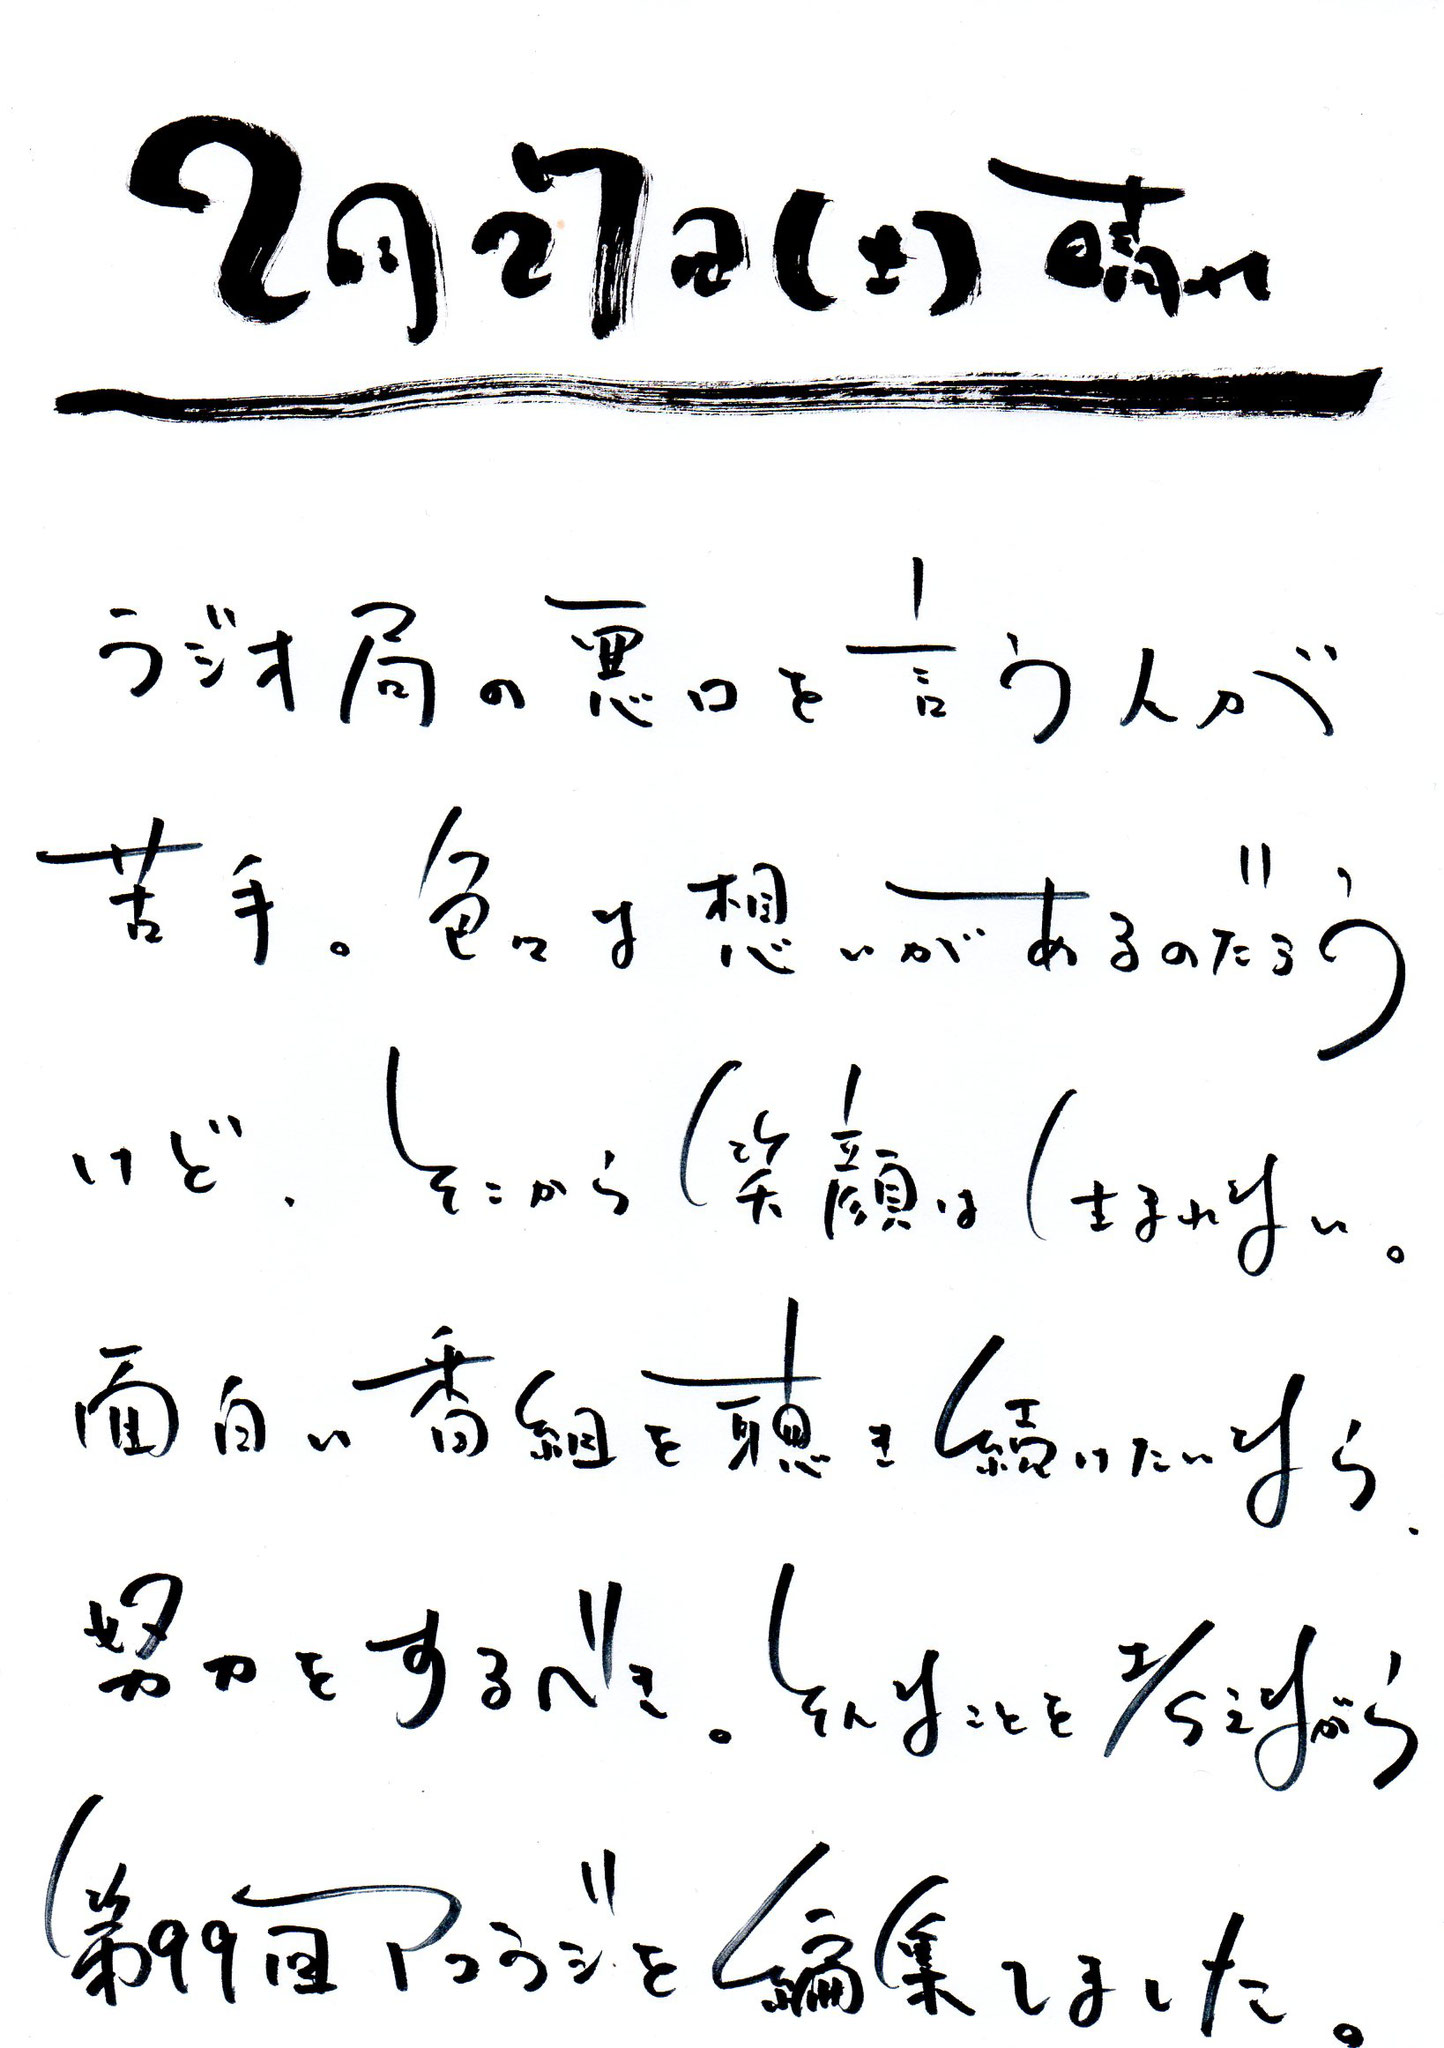 2月27日(土)晴れ
ラジオ局の悪口を言う人が
苦手。色々な想いがあるのだろう
けど、そこから笑顔は生まれない。
面白い番組を聴き続けたいなら、
努力をするべき。そんなことを考えながら
第99回アコラジを編集しました。